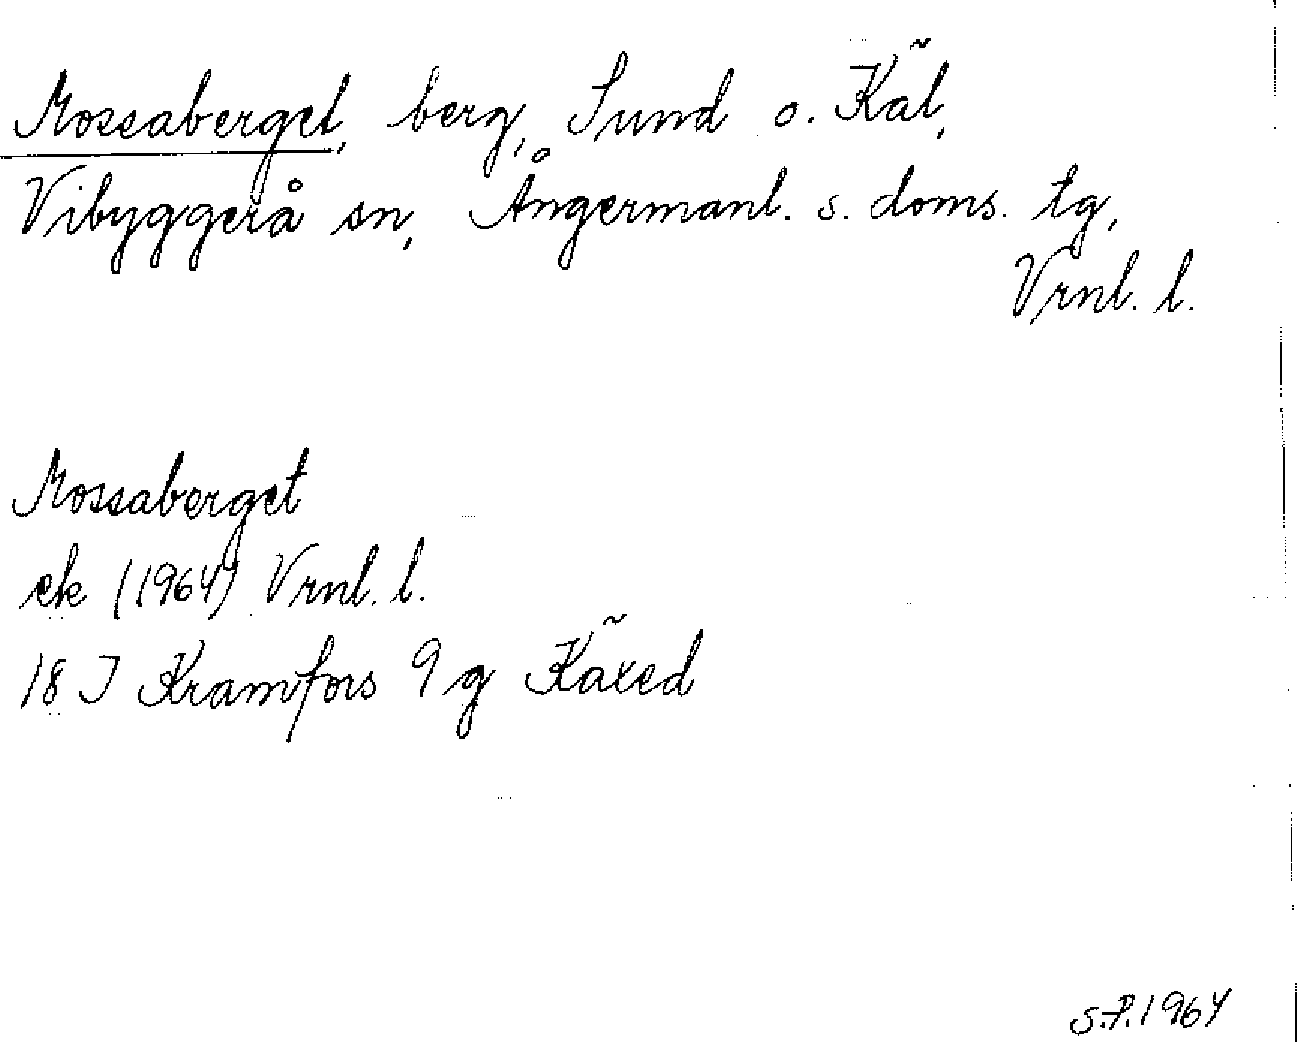 Mossaberget, berg, Sund o. Käl,
Vibyggerå sn, Ångermanl. s. doms. tg,
Vrnl. l.
Mossaberget
ek (1964) Vrnl. l.
18 J Kramfors 9 g Käxed
S.P. 1964